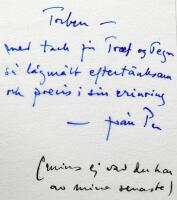 Torben —
med tack för Træf og Tegn
så lågmält eftertänksam
och precis i sin erinring
— från Per
(minns ej vad du har
av mina senaste)